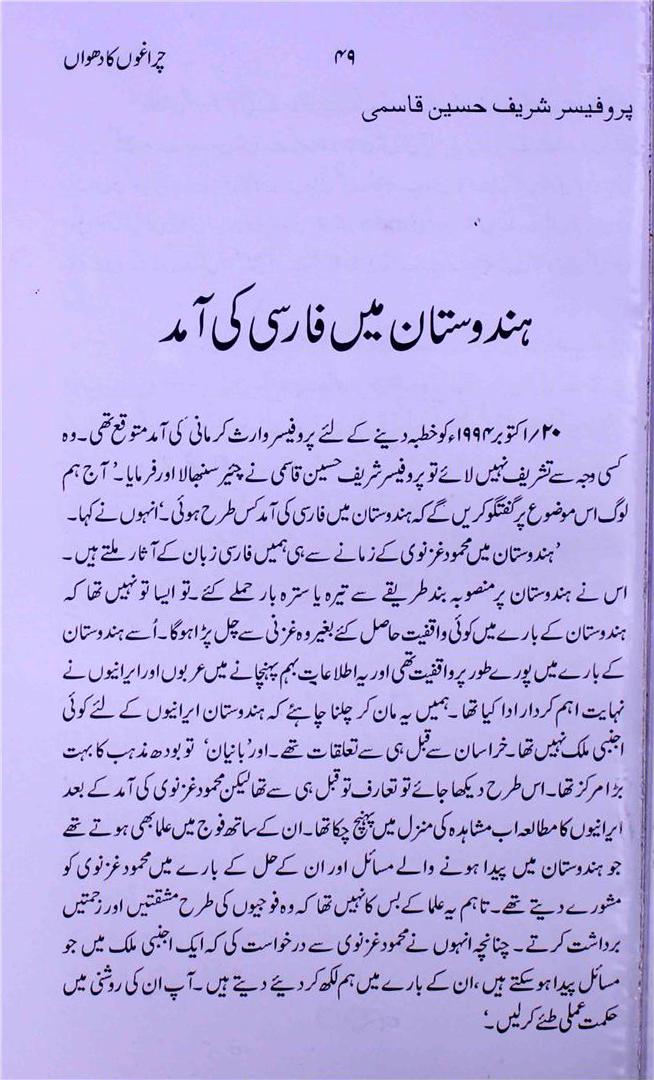 چراغوں کا دھواں
۴۹
پروفیسر شریف حسین قاسمی
ہندوستان میں فارسی کی آمد
۲۰/اکتوبر ۱۹۹۴ء کو خطبہ دینے کے لئے پروفیسر وارث کرمانی کی آمد متوقع تھی۔ وہ
کسی وجہ سے تشریف نہیں لائے تو پروفیسر شریف حسین قاسمی نے چئیر سنبھالا اور فرمایا۔ ’آج ہم
لوگ اس موضوع پر گفتگو کریں گے کہ ہندوستان میں فارسی کی آمد کس طرح ہوئی۔‘ انہوں نے کہا۔
’ہندوستان میں محمود غزنوی کے زمانے سے ہی ہمیں فارسی زبان کے آثار ملتے ہیں۔
اس نے ہندوستان پر منصوبہ بند طریقے سے تیرہ یا سترہ بار حملے کئے۔ تو ایسا تو نہیں تھا کہ
ہندوستان کے بارے میں کوئی واقفیت حاصل کئے بغیر وہ غزنی سے چل پڑا ہوگا۔ اُسے ہندوستان
کے بارے میں پورے طور پر واقفیت تھی اور یہ اطلاعات بہم پہنچانے میں عربوں اور ایرانیوں نے
نہایت اہم کردار ادا کیا تھا۔ ہمیں یہ مان کر چلنا چاہئے کہ ہندوستان ایرانیوں کے لئے کوئی
اجنبی ملک نہیں تھا۔ خراسان سے قبل ہی سے تعلقات تھے۔ اور ’بانیان‘ تو بودھ مذہب کا بہت
بڑا مرکز تھا۔ اس طرح دیکھا جائے تو تعارف تو قبل ہی سے تھا لیکن محمود غزنوی کی آمد کے بعد
ایرانیوں کا مطالعہ اب مشاہدہ کی منزل میں پہنچ چکا تھا۔ ان کے ساتھ فوج میں علما بھی ہوتے تھے
جو ہندوستان میں پیدا ہونے والے مسائل اور ان کے حل کے بارے میں محمود غزنوی کو
مشورے دیتے تھے۔ تاہم یہ علما کے بس کا نہیں تھا کہ وہ فوجیوں کی طرح مشقتیں اور زحمتیں
برداشت کرتے۔ چنانچہ انہوں نے محمود غزنوی سے درخواست کی کہ ایک اجنبی ملک میں جو
مسائل پیدا ہو سکتے ہیں، ان کے بارے میں ہم لکھ کر دیئے دیتے ہیں۔ آپ ان کی روشنی میں
حکمت عملی طئے کر لیں۔‘